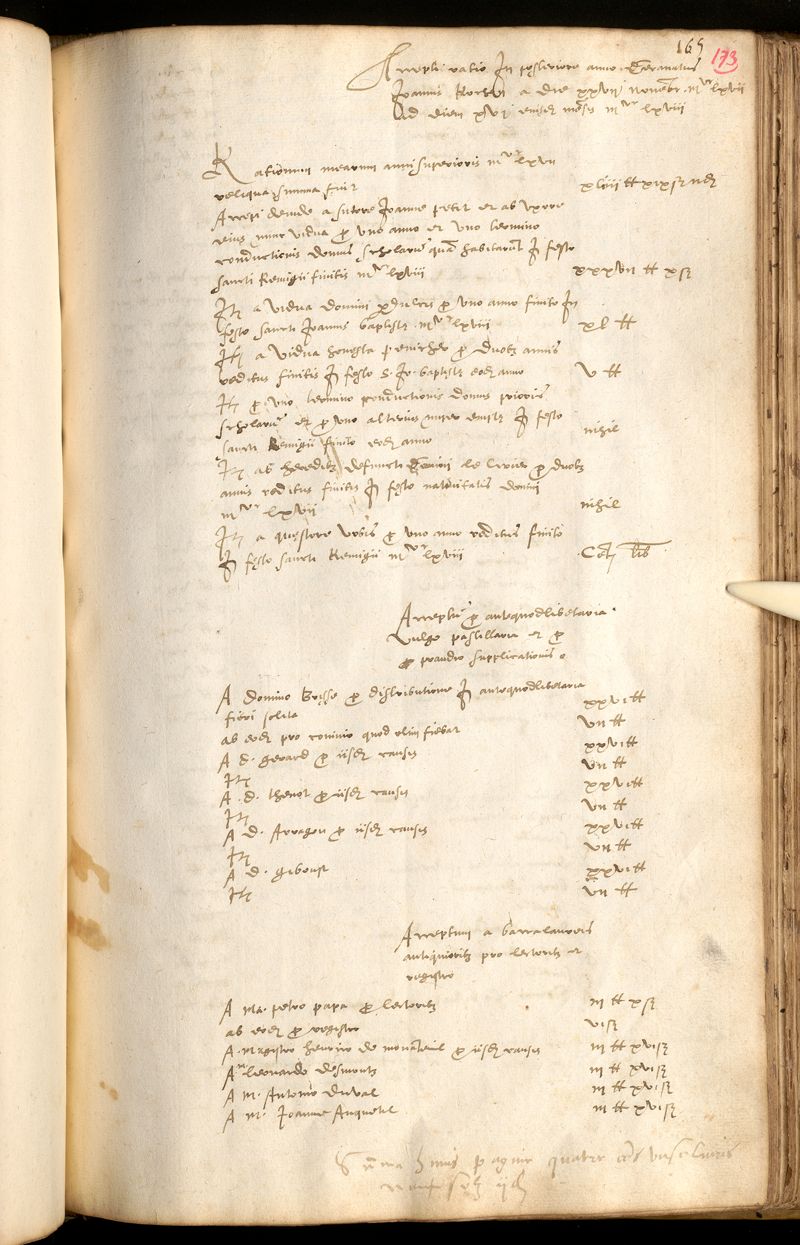 165
173
Accepti ratio In posteriore anno decanatus
Joannis a die xxvij novembr. mvc lxvii
ad diem xvj eiusdem mensis mvc lxviii
Rationum mearum anni superioris mvc lxvii
reliqua summa fuit xlviii tt xix s
Accepi deinde a sutore Joanne petit et ab uxore
eius nunc vidua pro uno anno et uno termino
conductionis domus scholarum quam habitarunt In festo
sancti Remigii finitis mvc lxviii xxxvii tt x s
Item a vidua domini pro uno anno finito In
festo sancti Joannis baptiste mvc lxviii xl tt
It a vidua honesta pro duobus annis
reditus finitis In festo S. Jo. baptiste eodem anno v tt
It pro uno termino conductionis domus prioris
scholarum et pro uno alterius nuper empte In festo
sancti Remigii finito eodem anno nihil
It ab heredibus defuncti pro duobus
annis reditus finitis In festo nativitatis domini
mvc lxvii nihil
It a questore urbis pro uno anno reditus finito
In festo sancti Remigii mvc lxviii
Acceptum pro antequodlibetaria
vulgo pastillaria et pro
pro prandio supplicationis
A domino pro distributione In antequodlibetaria
fieri solita xxvi tt
ab eodem pro convivio quod olim fiebat vii tt
A d. gerard pro iisdem causis xxvi tt
It vii tt
A d. thenot pro iisdem causis xxvi tt
It vii tt
A d. Arragon pro iisdem causis xxvi tt
It vii tt
A d. gibout xxvi tt
It vii tt
Acceptum a baccalaureis
antiquioribus pro lectoribus et
registro
A Ma. petro papa pro lectoribus iii tt x s
ab eodem pro registro vi s
A Magistro henrico de monanteuil pro iisdem causis iii tt xvi s
A m leonardo desmontz iii tt xvi s
A M. Antonio duval iii tt xvi s
A M. Joanne Anquetil iii tt xvi s
Summa huius pagine